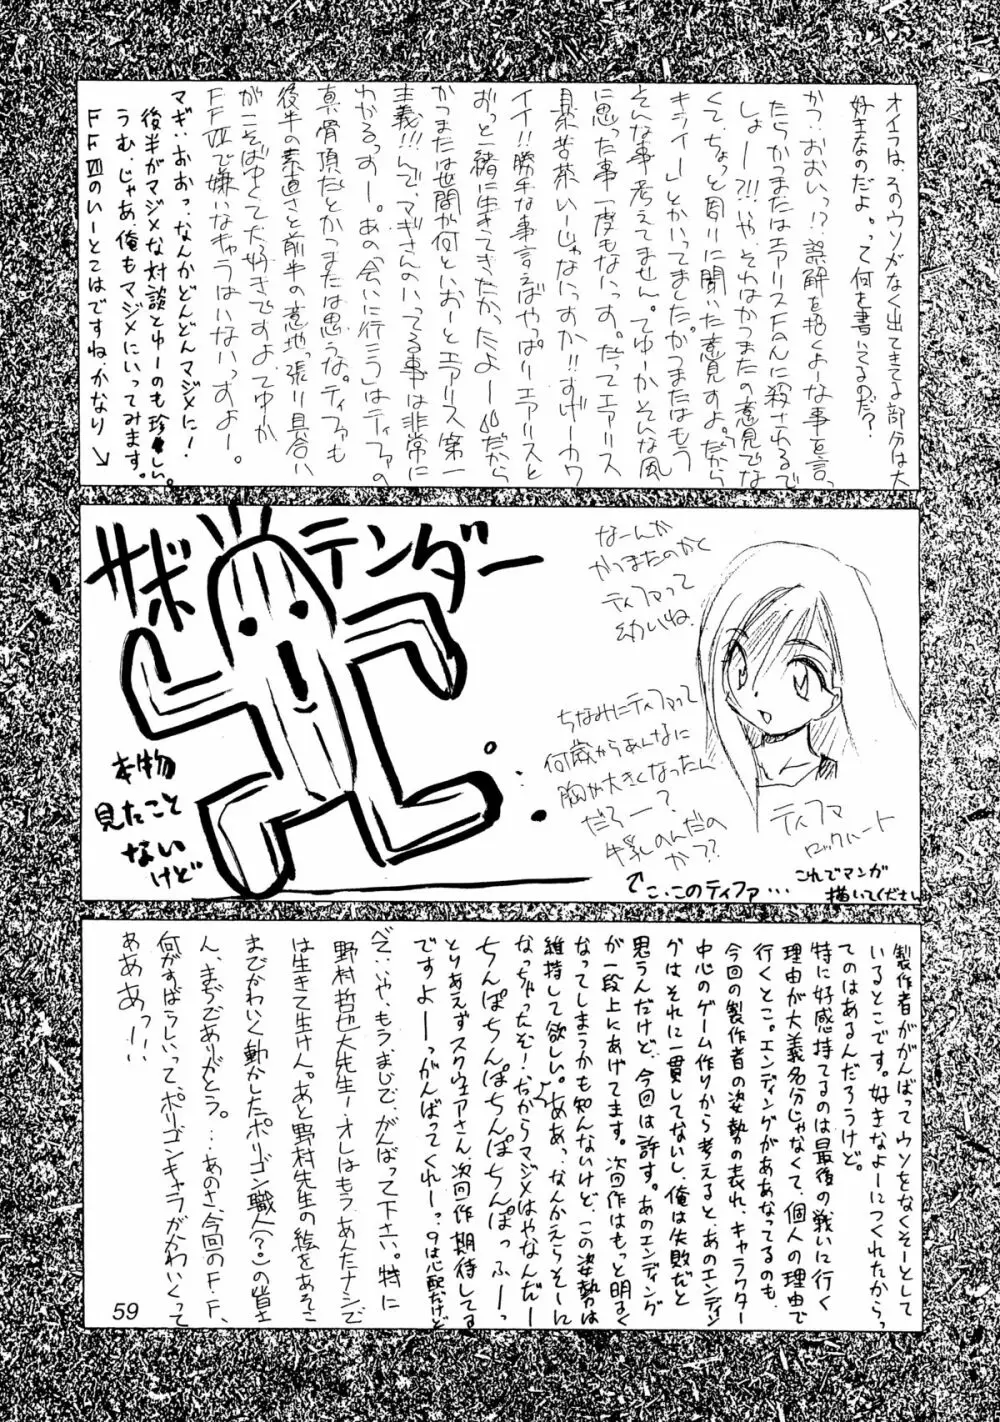 オイラは、そのウソがなく出てきてる部分は大
好きなのだよ。って何を書いてるのだ?
かつ:おおいっ!?誤解を招くよーな事を言っ
たらかつまたはエアリスFanに殺されるで
しょー?!!いや、それはかつまたの意見でな
くて、ちょっと周りに聞いた意見ですよ。だから
キライーとかいってましたが、かつまたはもう
そんな事考えてません。てゆーかそんな風
に思った事一度もないっす。だってエアリス
最茶苦茶いーじゃないっすか!!すげーカワ
イイ!!勝手な事言えばやっぱりエアリスと
ずっと一緒に生きてきたかったよーだから
かつまたは世間が何といおーとエアリス第一
主義!!!んで、マギさんのいってる事は非常に
わかるっすー。あの「会いに行こう」はティファの
真骨頂だとかつまたは思うな。ティファも
後半の素直さと前半の意地っ張り具合い
がこそばゆくて大好きですよ。てゆーか
FFⅦで嫌いなキャラはいないっすよー。
マギ:おおっ、なんかどんどんマジメに!
後半がマジメな対談とゆーのも珍しい。
うむ、じゃあ俺もマジメにいってみます。
FFⅦのいーとこはですね、かなり→
サボテンダー
本物
見たこと
ないけど
なーんか
かつまたのかく
ティファって
幼いね。
ちなみにティファって
何歳からあんなに
胸が大きくなったん
だろー?
牛乳のんだの
か??
ティファ
ロックハート
こ、このティファ…
これでマンガ
描いてください
製作者ががんばってウソをなくそーとして
いるとこです。好きなよーにつくれたからっ
てのはあるんだろうけど。
特に好感持てるのは最後の戦いに行く
理由が大義名分じゃなくて、個人の理由で
行くとこ。エンディングがああなってるのも、
今回の製作者の姿勢の表れ、キャラクター
中心のゲーム作りから考えると、あのエンディン
グはそれに一貫してないし、俺は失敗だと
思うんだけど、今回は許す。あのエンディング
が一段上にあげてます。次回作はもっと明るく
なってしまうかも知んないけど、この姿勢は
維持して欲しい。ああっ、なんかえらそーに
なっちゃったぞ!だからマジメはやなんだー
ちんぽちんぽちんぽちんぽっふーっ
とりあえずスクウェアさん次回作期待してる
ですよーーっがんばってくれーっ、9は心配だけど
べ、いや、もう、まじで、がんばって下さい。特に
野村哲也大先生ー!オレはもう、あんたナシで
は生きて生けん。あと野村先生の絵をあそこ
までかわいく動かしたポリゴン職人(?)の皆さ
ん、まぢであーがとう。…あのさ、今回のF.F.
何がすばらしいって、ポリゴンキャラがかわいくって
ああああっ!!!
59